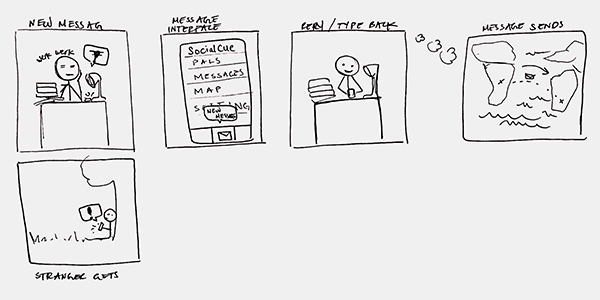 NEW MESSAG
WORK WORK
MESSAGE
INTERFACE
SocialCue
PALS
MESSAGES
MAP
SETTING
NEW
MESSAG
/ TYPE BACK
MESSAGE SENDS
x
x
!
STRANGER GETS